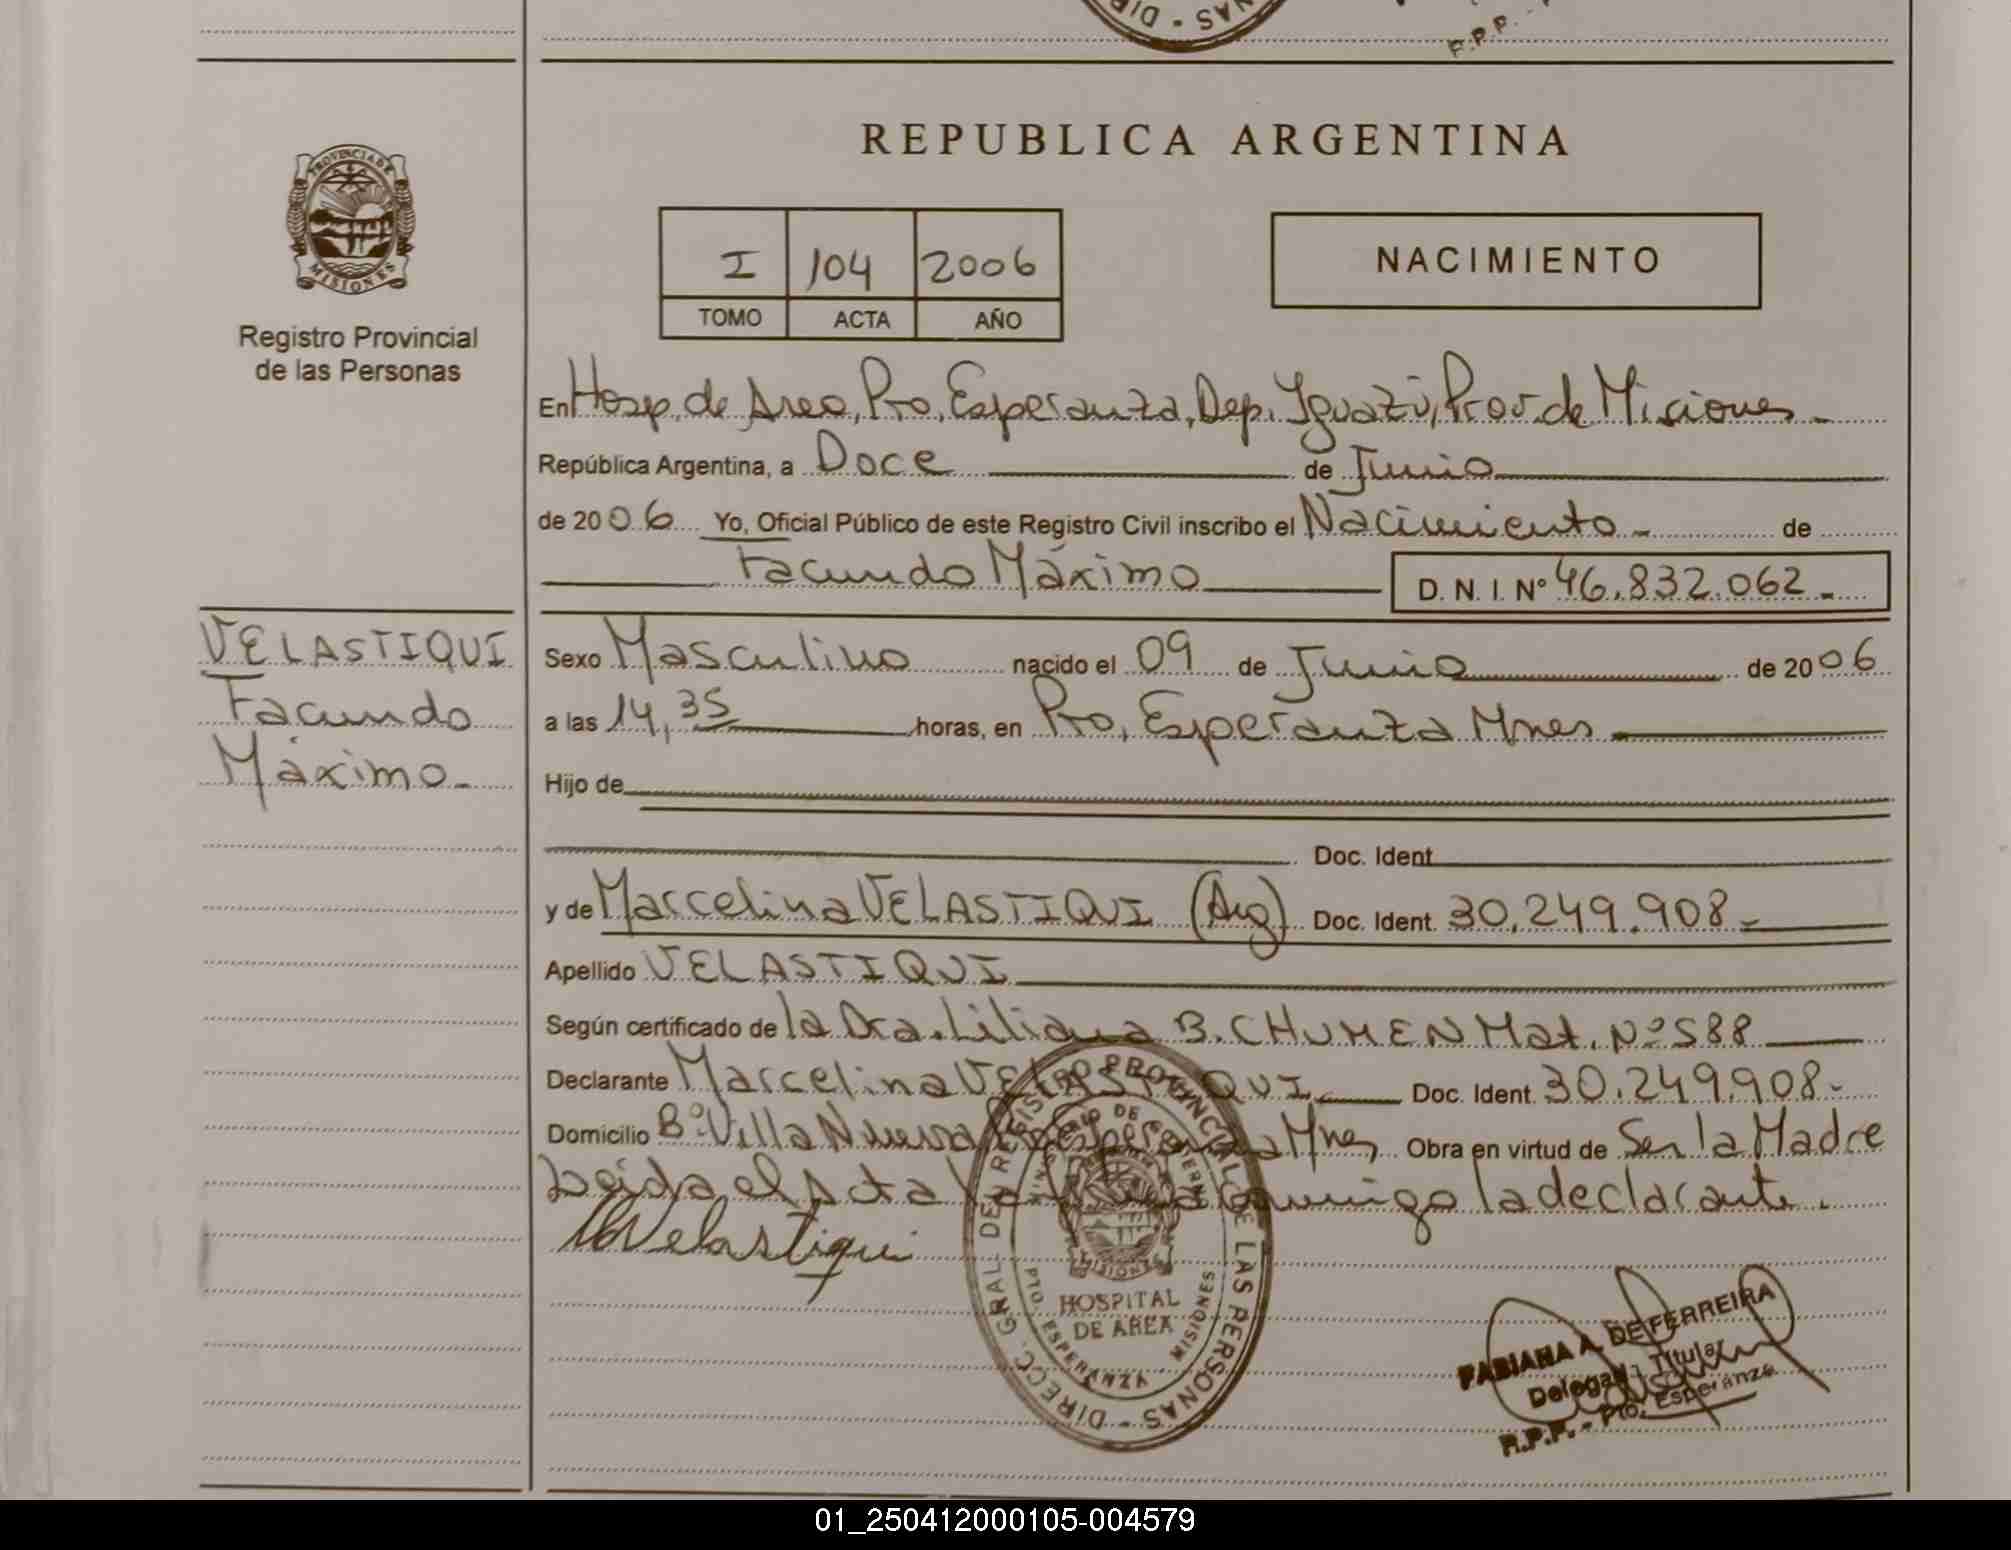 DIR - NAS
P.P. -
PROVINCIA DE
MISIONES
Registro Provincial
de las Personas
REPUBLICA ARGENTINA
I 104 2006
TOMO ACTA AÑO
NACIMIENTO
En Hosp. de Area, Pto. Esperanza, Dep. Iguazú, Prov. de Misiones -
República Argentina, a Doce de Junio
de 2006 Yo, Oficial Público de este Registro Civil inscribo el Nacimiento - de
Facundo Máximo D. N. I. Nº 46.832.062 -
VELASTIQUI
Facundo
Máximo -
Sexo Masculino nacido el 09 de Junio de 2006
a las 14,35 horas, en Pto. Esperanza Mnes
Hijo de
Doc. Ident
y de Marcelina VELASTIQUI (Arg) Doc. Ident. 30.249.908 -
Apellido VELASTIQUI
Según certificado de la Dra. Liliana B. CHUMEN Mat. Nº 588
Declarante Marcelina VELASTIQUI Doc. Ident. 30.249.908 -
Domicilio Bº Villa Nueva Pto Esperanza Mnes Obra en virtud de Ser la Madre
Leida el Acta la firma conmigo la declarante.
MVelastiqui
DIRECC. GRAL. DEL REGISTRO PROVINCIAL DE LAS PERSONAS -
MINISTERIO DE GOBIERNO
MISIONES
HOSPITAL
DE AREA
PTO. ESPERANZA - MISIONES
FABIANA A. DE FERREIRA
Delegada Titular
R.P.P. - Pto. Esperanza
01_250412000105-004579